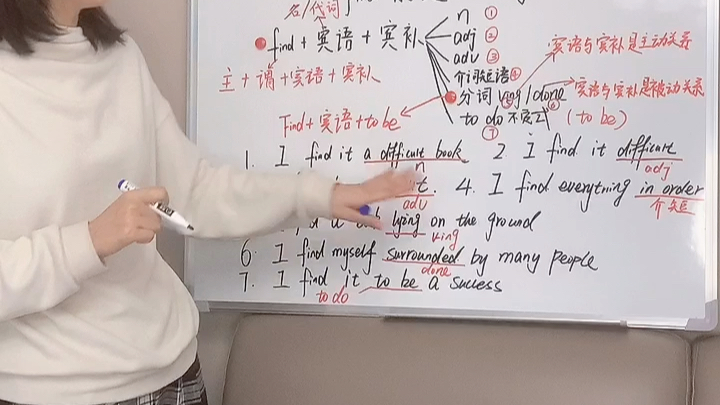 名/代词
find + 宾语 + 宾补
n ①
adj ②
adv ③
介词短语 ④
分词 ving / done
⑤ ⑥
to do 不定式 (to be)
⑦
宾语与宾补是主动关系
宾语与宾补是被动关系
主 + 谓 + 宾语 + 宾补
Find + 宾语 + to be
1. I find it a difficult book
n
2 I find it difficult
adj
adv
4. I find everything in order
介短
lying on the ground
ving
6 I find myself surrounded by many people
done
7. I find it to be a success
to do